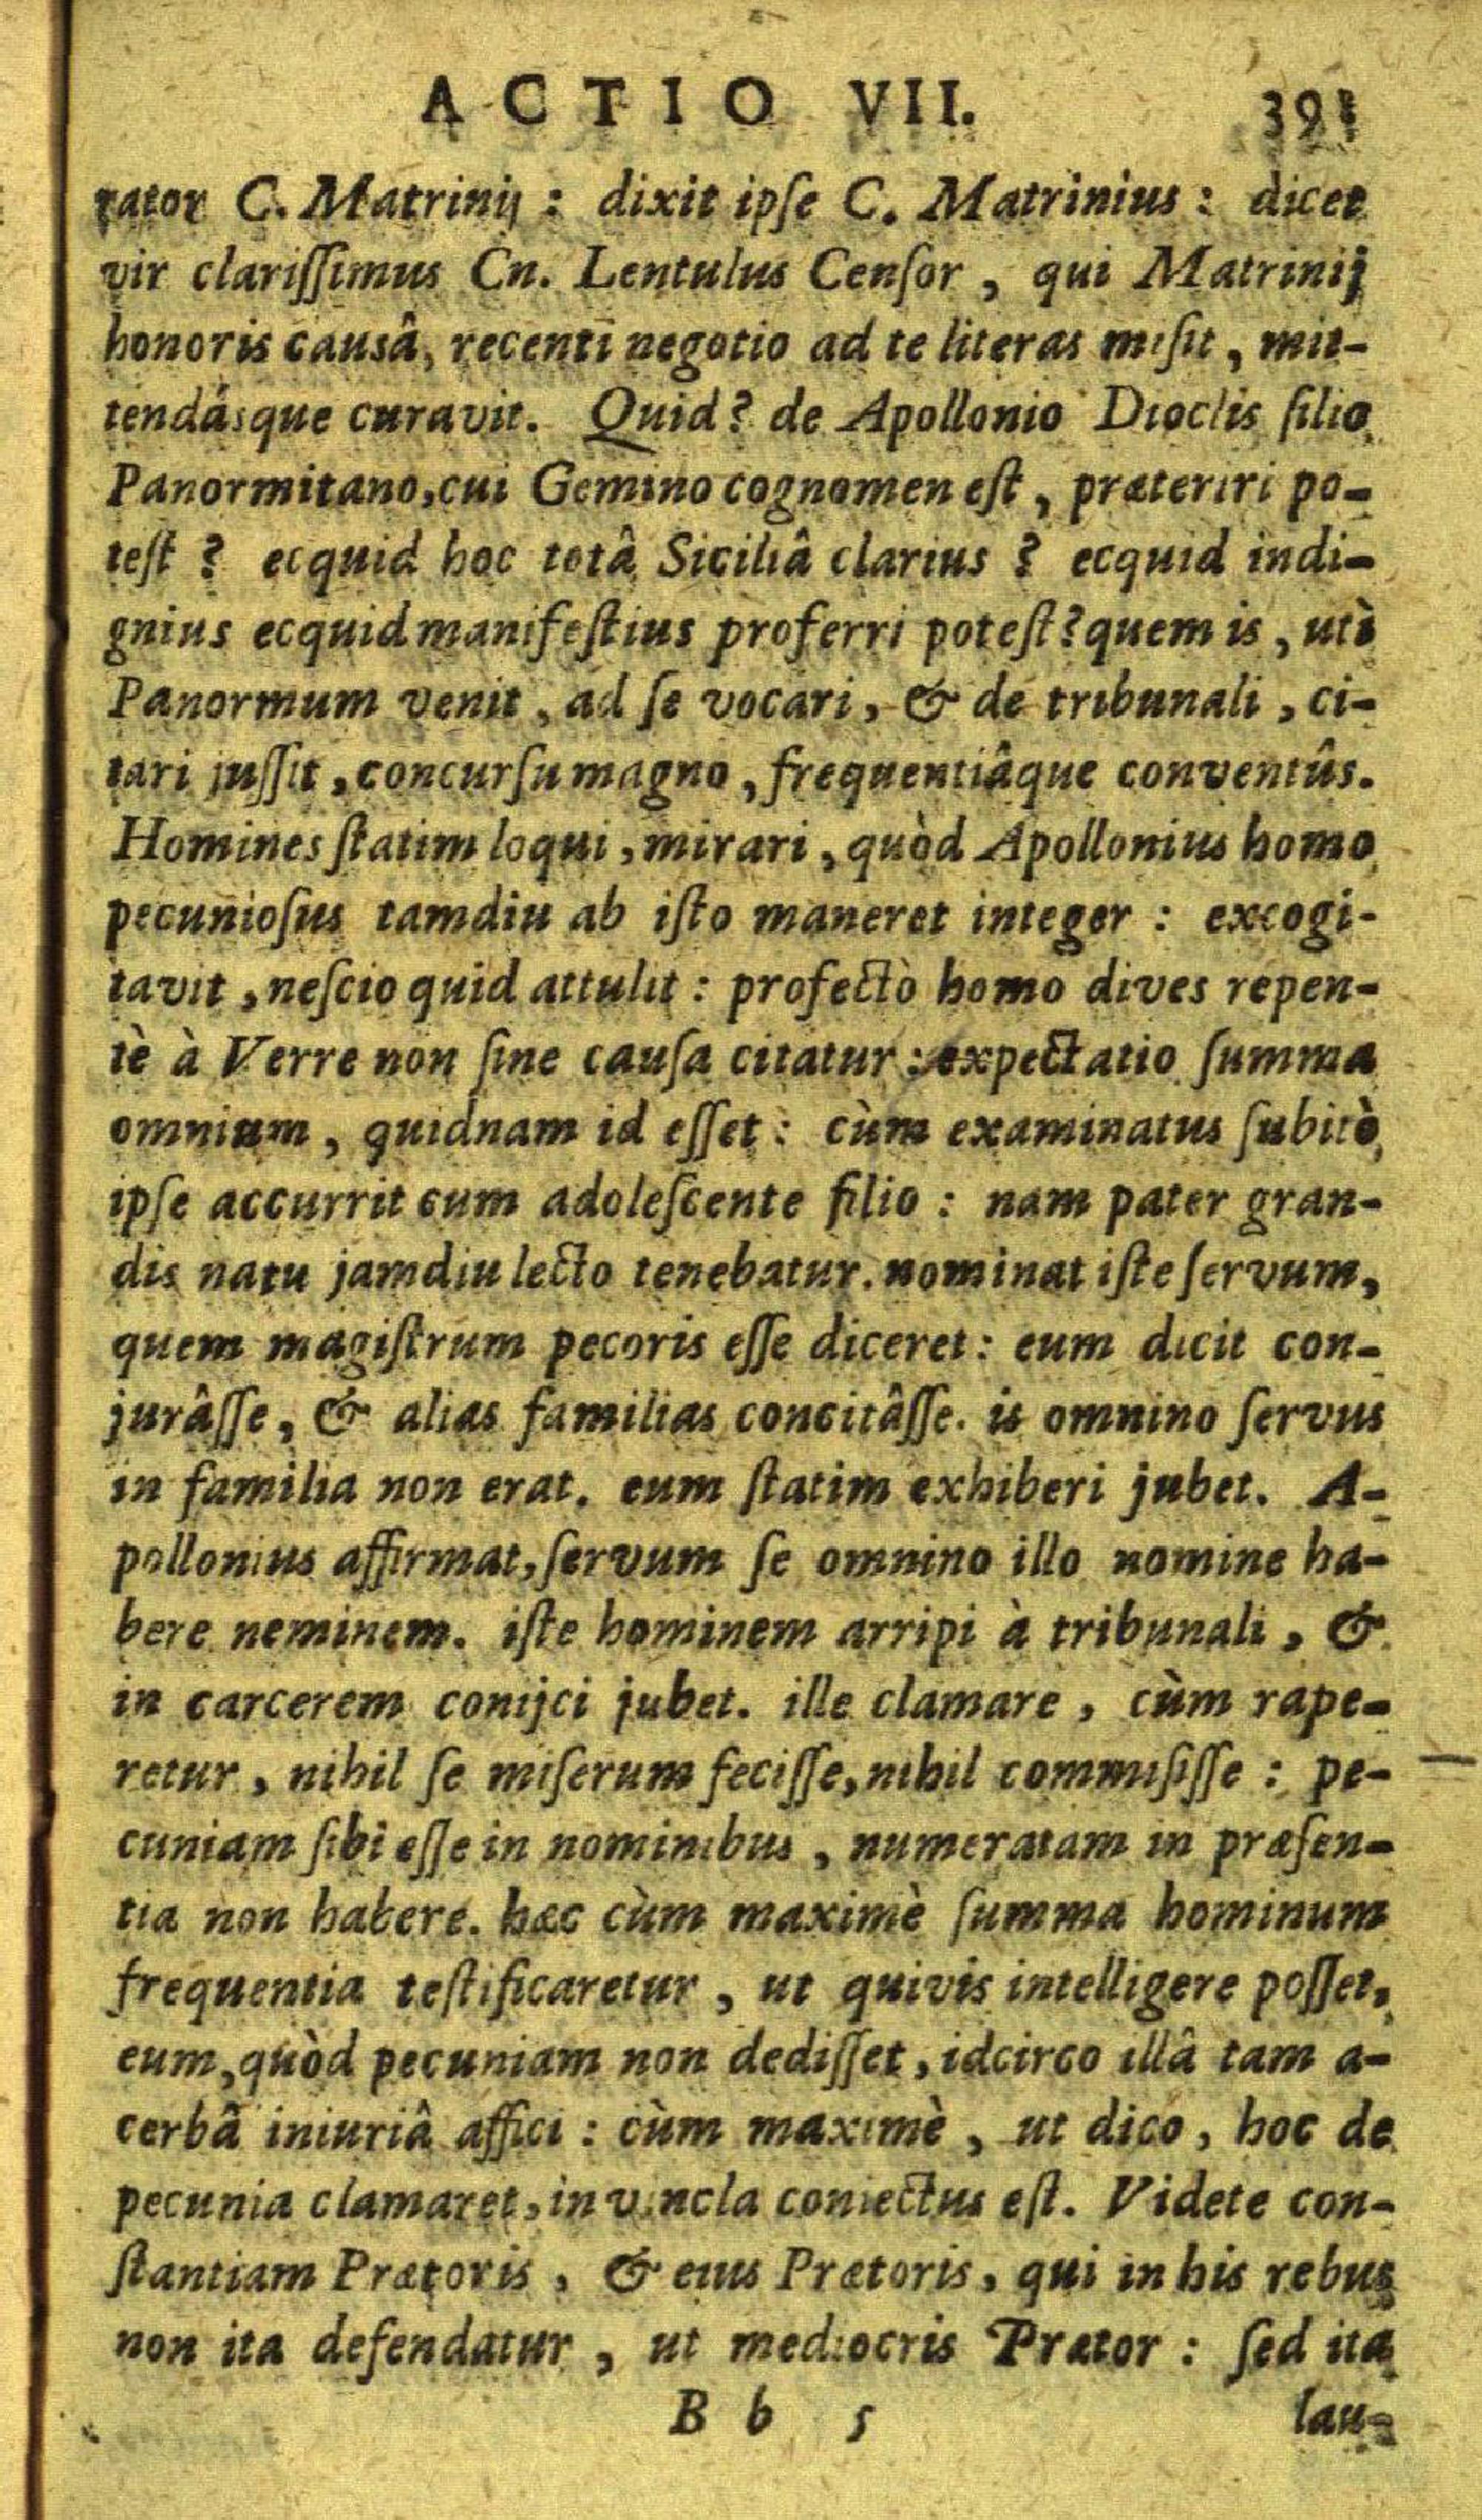 ACTIO VII. 391
rator C. Matrinij : dixit ipſe C. Matrinius : dicet
vir clariſſimus Cn. Lentulus Cenſor , qui Matrinij
honoris causâ, recenti negotio ad te literas miſit , mit-
tendásque curavit. Quid ? de Apollonio Dioclis filio
Panormitano, cui Gemino cognomen eſt , præteriri po-
teſt ? ecquid hoc totâ Siciliâ clarius ? ecquid indi-
gnius ecquid manifeſtius proferri poteſt ? quem is , utì
Panormum venit , ad ſe vocari , & de tribunali , ci-
tari juſſit , concurſu magno , frequentiâque conventûs.
Homines ſtatim loqui , mirari , quòd Apollonius homo
pecunioſus tamdiu ab iſto maneret integer : excogi-
tavit , neſcio quid attulit : profectò homo dives repen-
tè à Verre non ſine cauſa citatur : expectatio ſumma
omnium , quidnam id eſſet : cùm examinatus ſubitò
ipſe accurrit cum adoleſcente filio : nam pater gran-
dis natu jamdiu lecto tenebatur. nominat iſte ſervum,
quem magiſtrum pecoris eſſe diceret : eum dicit con-
jurâſſe, & alias familias concitâſſe. is omnino ſervus
in familia non erat. eum ſtatim exhiberi jubet. A-
pollonius affirmat, ſervum ſe omnino illo nomine ha-
bere neminem. iſte hominem arripi à tribunali , &
in carcerem conijci jubet. ille clamare , cùm rape-
retur , nihil ſe miſerum feciſſe, nihil commiſiſſe : pe-
cuniam ſibi eſſe in nominibus , numeratam in præſen-
tia non habere. hæc cùm maximè ſumma hominum
frequentia teſtificaretur , ut quivis intelligere poſſet,
eum, quòd pecuniam non dediſſet , idcirco illâ tam a-
cerbâ iniuriâ affici : cùm maximè , ut dico , hoc de
pecunia clamaret, in vincla coniectus eſt. Videte con-
ſtantiam Prætoris , & eius Prætoris , qui in his rebus
non ita defendatur , ut mediocris Prætor : ſed ita
B b 5 lau-